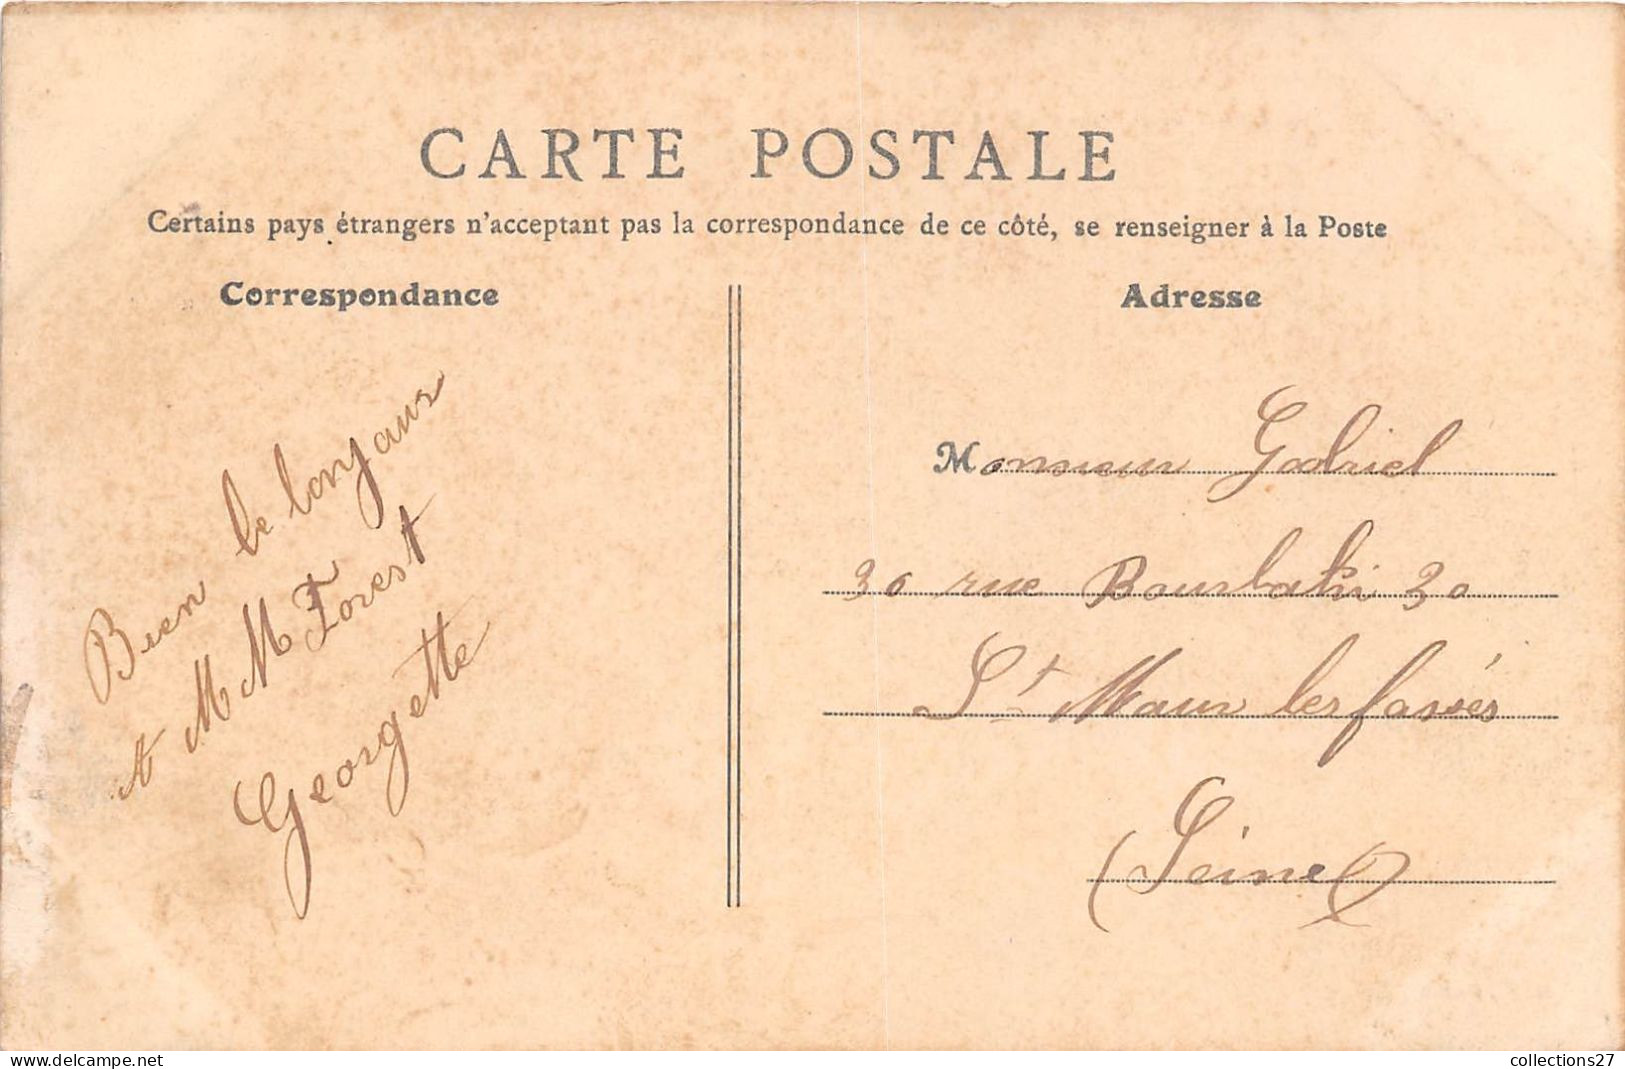 CARTE POSTALE
Certains pays étrangers n'acceptant pas la correspondance de ce côté, se renseigner à la Poste
Correspondance
Adresse
Bien le bonjour
A M M Forest
Georgette
Monsieur Gabriel
30 rue Bourbaki 30
St Maur les fossés
(Seine)
collections27